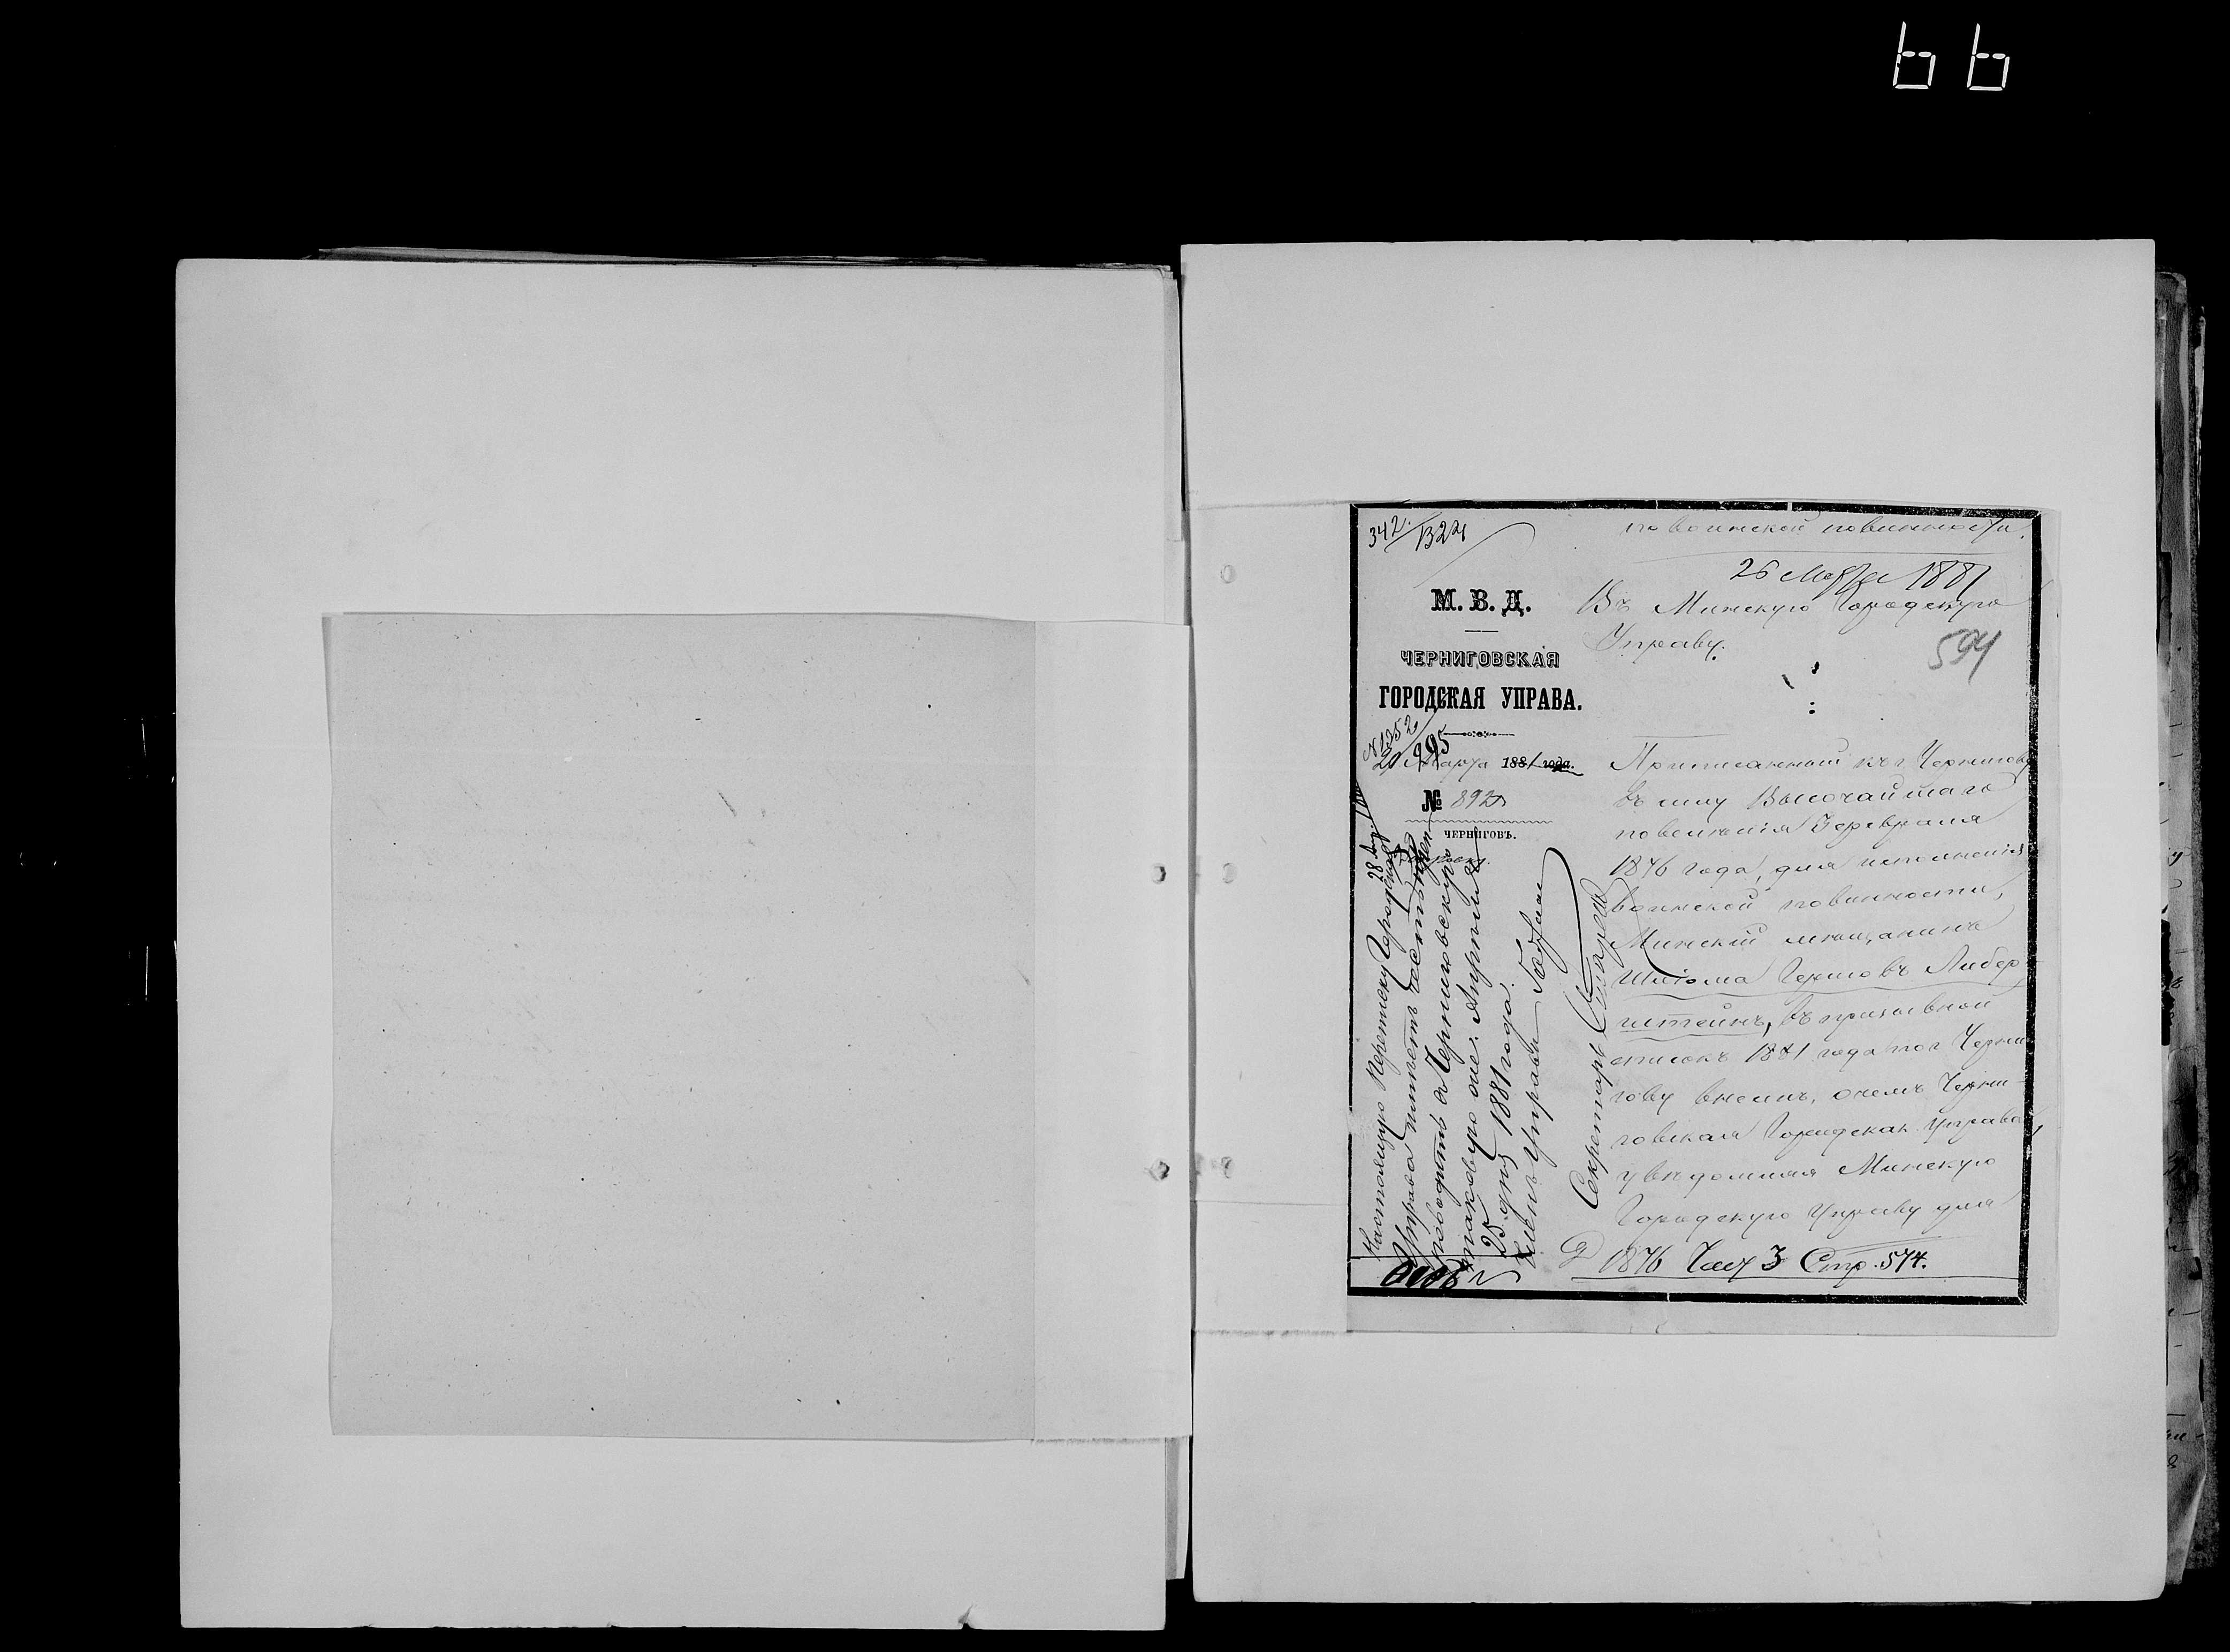 66
342/1324
по воинской повинности.
26 Марта 1881
М. В. Д.
ЧЕРНИГОВСКАЯ
ГОРОДСКАЯ УПРАВА.
Марта 1881 года.
№ 892
ЧЕРНИГОВЪ.
Въ Минскую Городскую
Управу.
594
Приписанный къ г. Чернигову
въ силу Высочайшаго
повелѣнія 3 февраля
1876 года, для исполненія
воинской повинности,
Минскій мѣщанинъ
Шліома Гершовъ Либер
штейнъ, въ призывной
списокъ 1881 года по г. Черни
гову внесенъ, о чемъ Черни-
говская Городская Управа,
увѣдомляя Минскую
Городскую Управу для
1876 Част 3 Стр. 574.
Настоящую переписку Городская
Управа имѣетъ честь пре
проводить въ Черниговскую
таковую же. Апрѣля
25 дня 1881 года.
Членъ Управы
Секретарь